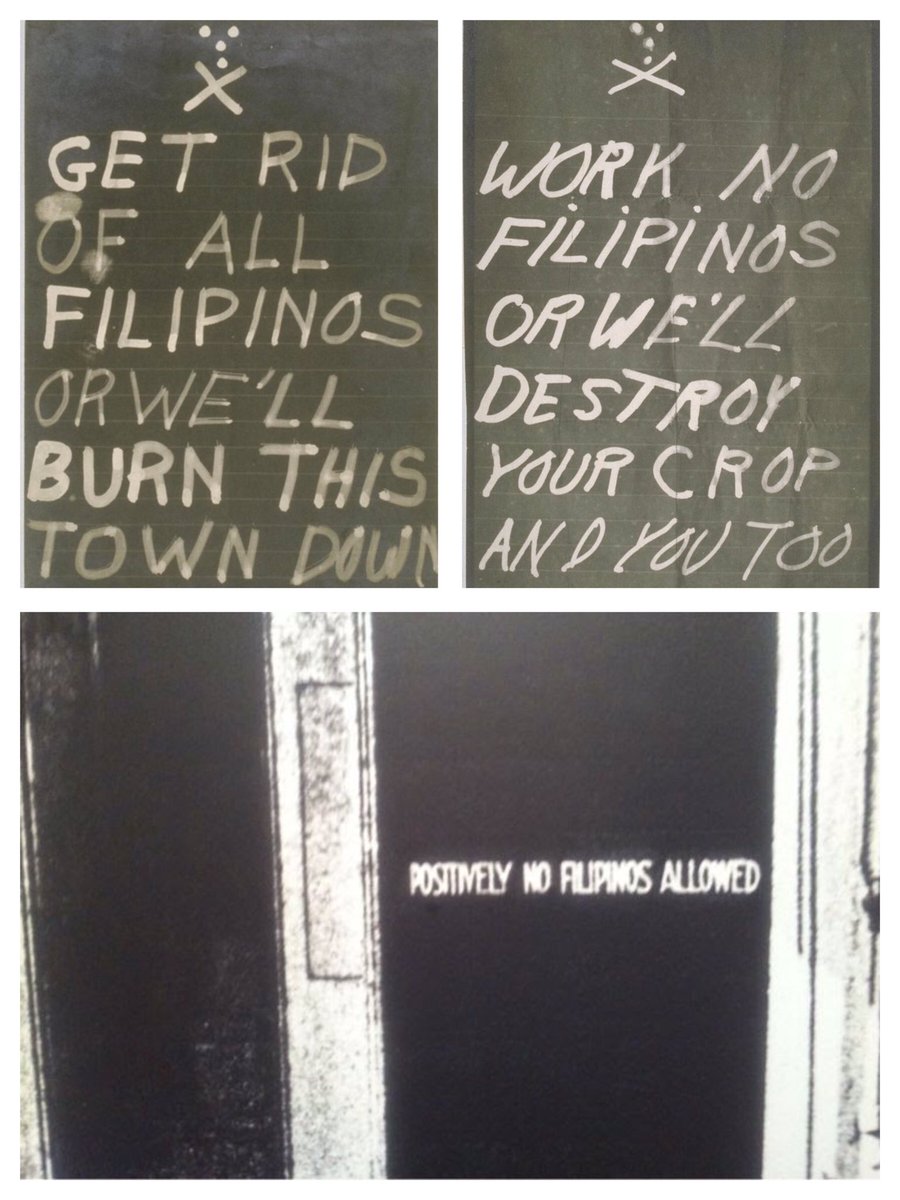 GET RID
OF ALL
FILIPINOS
OR WE'LL
BURN THIS
TOWN DOWN
WORK NO
FILIPINOS
OR WE'LL
DESTROY
YOUR CROP
AND YOU TOO
POSITIVELY NO FILIPINOS ALLOWED